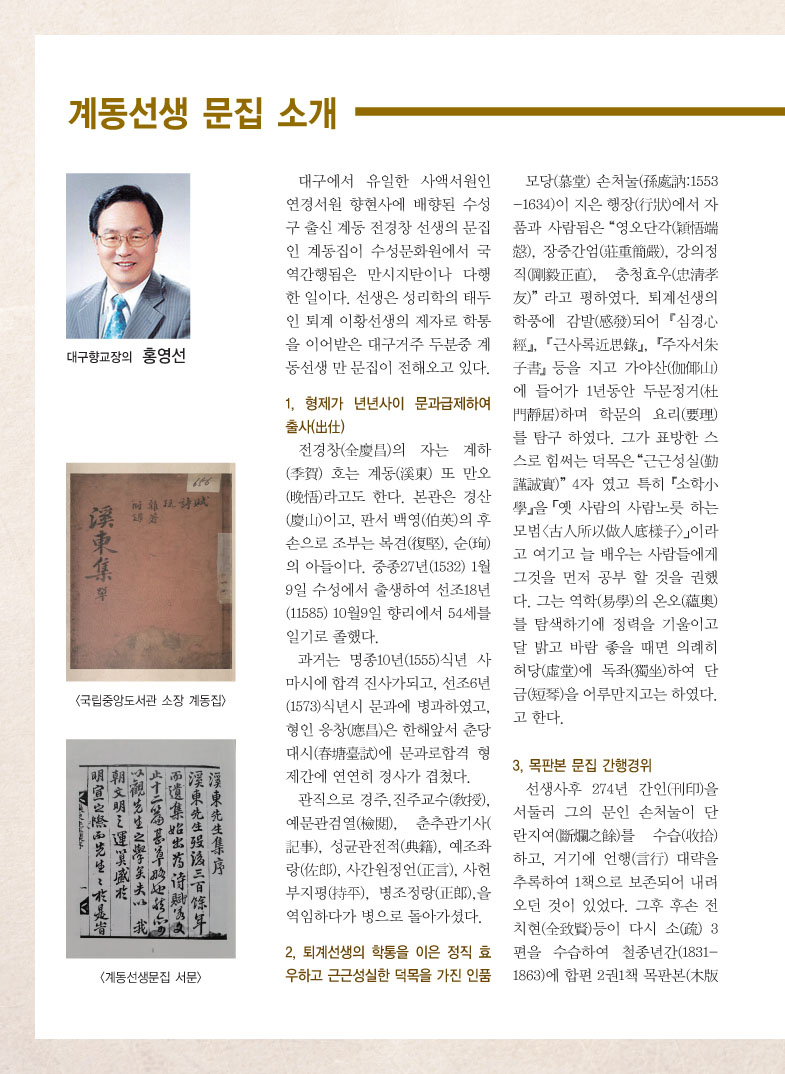 계동선생 문집 소개
대구향교장의 홍영선
溪東集 單
賦 詩 疏 雜著 附錄
686
〈국립중앙도서관 소장 계동집〉
溪東先生集序
溪東先生歿後三百餘年
而遺集始出
〈계동선생문집 서문〉
대구에서 유일한 사액서원인
연경서원 향현사에 배향된 수성
구 출신 계동 전경창 선생의 문집
인 계동집이 수성문화원에서 국
역간행됨은 만시지탄이나 다행
한 일이다. 선생은 성리학의 태두
인 퇴계 이황선생의 제자로 학통
을 이어받은 대구거주 두분중 계
동선생 만 문집이 전해오고 있다.
1, 형제가 년년사이 문과급제하여
출사(出仕)
전경창(全慶昌)의 자는 계하
(季賀) 호는 계동(溪東) 또 만오
(晩悟)라고도 한다. 본관은 경산
(慶山)이고, 판서 백영(伯英)의 후
손으로 조부는 복견(復堅), 순(珣)
의 아들이다. 중종27년(1532) 1월
9일 수성에서 출생하여 선조18년
(11585) 10월9일 향리에서 54세를
일기로 졸했다.
과거는 명종10년(1555)식년 사
마시에 합격 진사가되고, 선조6년
(1573)식년시 문과에 병과하였고,
형인 응창(應昌)은 한해앞서 춘당
대시(春塘臺試)에 문과로합격 형
제간에 연연히 경사가 겹쳤다.
관직으로 경주,진주교수(敎授),
예문관검열(檢閱), 춘추관기사(
記事), 성균관전적(典籍), 예조좌
랑(佐郎), 사간원정언(正言), 사헌
부지평(持平), 병조정랑(正郎),을
역임하다가 병으로 돌아가셨다.
2, 퇴계선생의 학통을 이은 정직 효
우하고 근근성실한 덕목을 가진 인품
모당(慕堂) 손처눌(孫處訥:1553
-1634)이 지은 행장(行狀)에서 자
품과 사람됨은 “영오단각(穎悟端
慤), 장중간엄(莊重簡嚴), 강의정
직(剛毅正直), 충청효우(忠淸孝
友)” 라고 평하였다. 퇴계선생의
학풍에 감발(感發)되어 『심경心
經』, 『근사록近思錄』, 『주자서朱
子書』 등을 지고 가야산(伽倻山)
에 들어가 1년동안 두문정거(杜
門靜居)하며 학문의 요리(要理)
를 탐구 하였다. 그가 표방한 스
스로 힘써는 덕목은 “근근성실(勤
謹誠實)” 4자 였고 특히 『소학小
學』을 「옛 사람의 사람노릇 하는
모범〈古人所以做人底樣子〉」이라
고 여기고 늘 배우는 사람들에게
그것을 먼저 공부 할 것을 권했
다. 그는 역학(易學)의 온오(蘊奧)
를 탐색하기에 정력을 기울이고
달 밝고 바람 좋을 때면 의례히
허당(虛堂)에 독좌(獨坐)하여 단
금(短琴)을 어루만지고는 하였다.
고 한다.
3, 목판본 문집 간행경위
선생사후 274년 간인(刊印)을
서둘러 그의 문인 손처눌이 단
란지여(斷爛之餘)를 수습(收拾)
하고, 거기에 언행(言行) 대략을
추록하여 1책으로 보존되어 내려
오던 것이 있었다. 그후 후손 전
치현(全致賢)등이 다시 소(疏) 3
편을 수습하여 철종년간(1831-
1863)에 합편 2권1책 목판본(木版